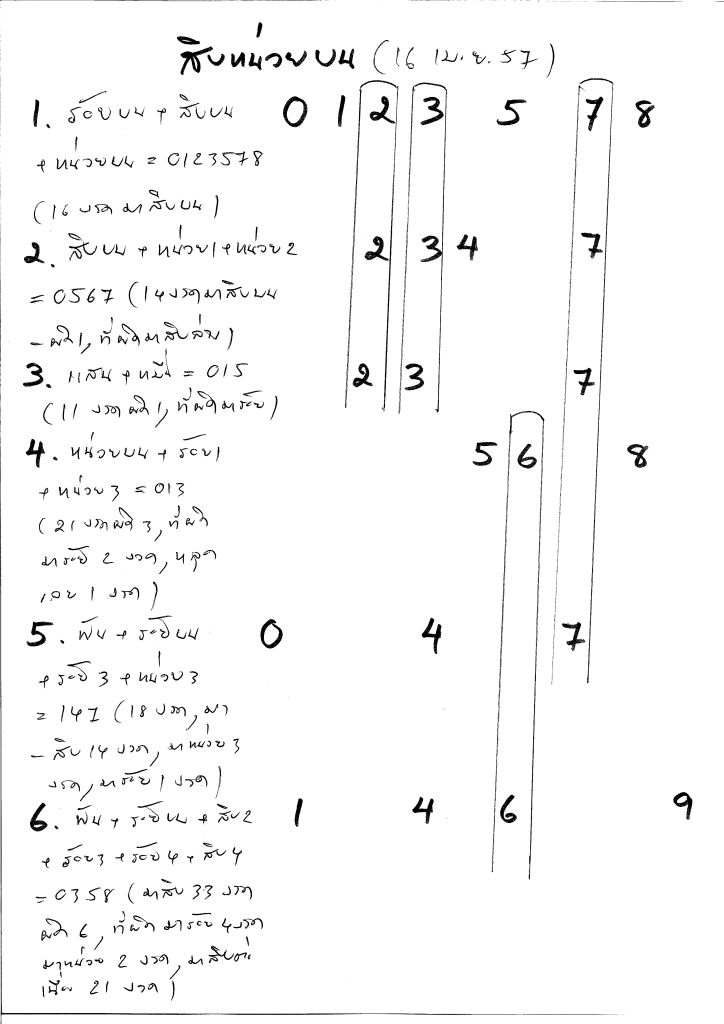 สิบหน่วยบน (16 เม.ย. 57)
1. ร้อยบน + สิบบน 0 1 2 3 5 7 8
+ หน่วยบน = 0123578
(16 งวด มาสิบบน)
2. สิบบน + หน่วย1 + หน่วย2 2 3 4 7
= 0567 (14 งวดมาสิบบน
- ผิด1, ที่ผิดมาสิบล่าง)
3. แสน + หมื่น = 015 2 3 7
(11 งวด ผิด1, ที่ผิดมาร้อย)
4. หน่วยบน + ร้อย1 5 6 8
+ หน่วย3 = 013
(21 งวดผิด 3, ที่ผิด
มาร้อย 2 งวด, หลุด
เลย 1 งวด)
5. พัน + ร้อยบน 0 4 7
+ ร้อย3 + หน่วย3
= 147 (18 งวด, มา
- สิบ 14 งวด, มาหน่วย 3
งวด, มาร้อย 1 งวด)
6. พัน + ร้อยบน + สิบ2 1 4 6 9
+ ร้อย3 + ร้อย4 + สิบ4
= 0358 (มาสิบ 33 งวด
ผิด 6, ที่ผิด มาร้อย 4 งวด
มาหน่วย 2 งวด, มาสิบ
21 งวด)